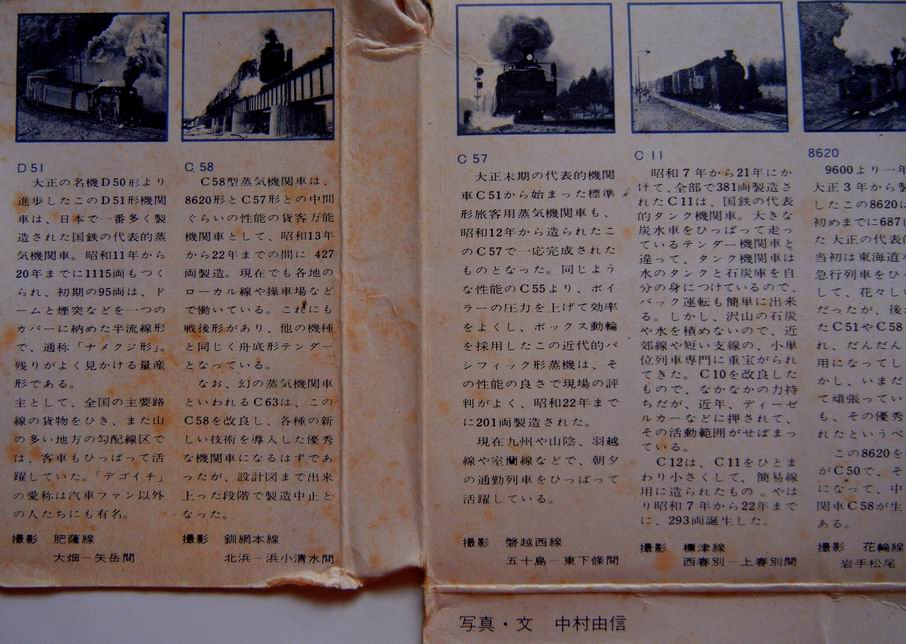 D51
大正の名機D50形より
進歩したこのD51形機関
車は、日本で一番多く製
造された国鉄の代表的蒸
気機関車。昭和11年から
20年までに1115両もつく
られ、初期の95両は、ド
ームと煙突などを一つの
カバーに納めた半流線形
で、通称「ナメクジ形」。
残りがよく見かける量産
形である。
主として、全国の主要路
線の貨物をひき、また山
の多い地方の勾配線区で
は、客車もひっぱって活
躍していた。「デゴイチ」
の愛称は汽車ファン以外
の人たちにも有名。
撮影 肥薩線
大畑－矢岳間
C58
C58型蒸気機関車は、
8620形とC57形との中間
ぐらいの性能の貨客万能
機関車として、昭和13年
から22年までの間に 427
両製造。現在でも各地の
ローカル線や操車場など
で働いている。これにも
戦後形があり、他の機種
と同じく舟底形テンダー
となっている。
なお、幻の蒸気機関車
といわれるC63は、この
C58を改良し、各種の新
しい技術を導入した優秀
な機関車になるはずであ
ったが、設計図まで出来
上った段階で製造中止と
なった。
撮影 釧網本線
北浜－浜小清水間
C57
大正末期の代表的機関
車C51から始まった標準
形旅客用蒸気機関車も、
昭和12年から造られたこ
のC57で一応完成された
ものとなった。同じよう
な性能のC55より、ボイ
ラーの圧力を上げて効率
をよくし、ボックス動輪
を採用したこの近代的パ
シフィック形蒸機は、そ
の性能の良さで現場の評
判がよく、昭和22年まで
に201両製造された。
現在九州や山陰、羽越
線や室蘭線などで、朝夕
の通勤列車をひっぱって
活躍している。
撮影 磐越西線
五十島－東下條間
C11
昭和7年から21年にか
けて、全部で381両製造さ
れたC11は、国鉄の代表
的タンク機関車。大きな
炭水車をひっぱって走っ
ているテンダー機関車と
違って、タンク機関車は
水のタンクと石炭庫を自
分の身につけているので、
バック運転も簡単に出来
る。しかし、沢山の石炭
や水を積めないので、近
郊線や短い支線の、小単
位列車専門に重宝がられ
てきた。C10を改良した
もので、なかなかの力持
ちだが、近年、ディーゼ
ルカーなどに押されて、
その活動範囲がせばまっ
ている。
C12は、C11をひとま
わり小さくして、簡易線
用に造られたもの。やは
り昭和7年から22年まで
に、293両誕生した。
撮影 標津線
西春別－上春別間
8620
9600より一年
大正3年から製
したこの8620に
初めまでに687
た大正の代表的
当初は東海道本
急行列車をひ
して、花々しい
だったが、後
たC51やC58
れ、だんだん
用になってし
かし、いまだ
て頑張ってい
も、その優秀
れたというべ
この8620を
がC50で、そ
になって、中
関車C58が生
ある。
撮影 花輪線
岩手松尾
写真・文 中村由信